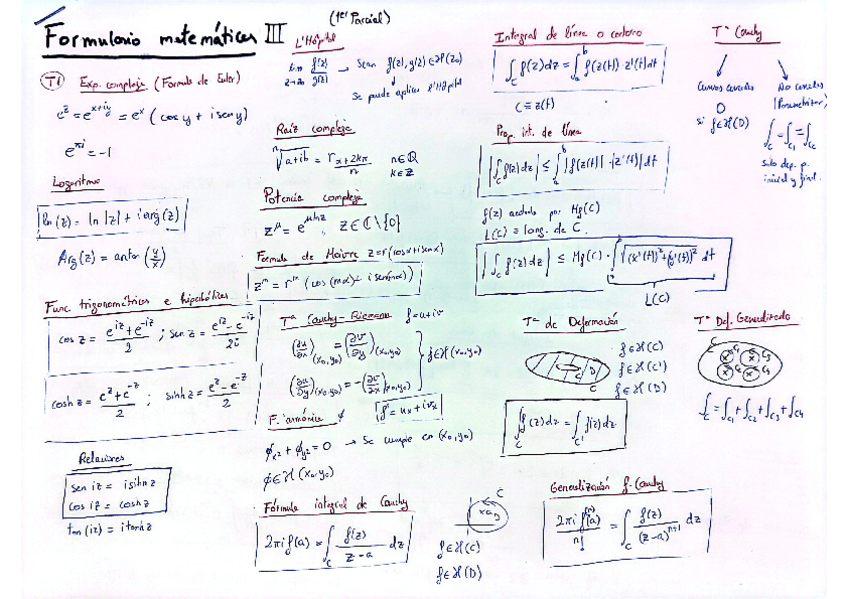 Formulario matemáticas III
(1er Parcial)
T1 Exp. compleja (Formula de Euler)
e^z = e^{x+iy} = e^x (cos y + i sen y)
e^{πi} = -1
Logaritmo
ln(z) = ln|z| + i arg(z)
Arg(z) = antan (y/x)
Func. trigonométricas e hipérbolicas
cos z = (e^{iz} + e^{-iz})/2 ; sen z = (e^{iz} - e^{-iz})/2i
cosh z = (e^z + e^{-z})/2 ; sinh z = (e^z - e^{-z})/2
Relaciones
sen iz = i sinh z
cos iz = cosh z
tan (iz) = i tanh z
L'Hôpital
lim z→z0 f(z)/g(z) → Sean f(z), g(z) ∈ H(z0)
Se puede aplicar L'Hôpital
Raíz compleja
ⁿ√(a+ib) = r_{(α+2kπ)/n} n∈ℚ
k∈ℤ
Potencia compleja
z^μ = e^{μ ln z}, z∈ℂ\{0}
Formula de Moivre z = r(cos α + i sen α)
z^m = r^m (cos(mα) + i sen(mα))
Tª Cauchy-Riemann f = u+iv
(∂u/∂x)(x0,y0) = (∂v/∂y)(x0,y0)
f∈H(x0,y0)
(∂u/∂y)(x0,y0) = -(∂v/∂x)(x0,y0)
f' = ux + ivx
F. armónica ϕ
ϕx² + ϕy² = 0 → Se cumple en (x0,y0)
ϕ∈H(x0,y0)
Fórmula integral de Cauchy
2πi f(a) = ∫_C f(z)/(z-a) dz
C
f∈H(C)
f∈H(D)
Integral de línea o contorno
∫_C f(z)dz = ∫_a^b f(z(t)) z'(t)dt
C ≡ z(t)
Prop. int. de línea
|∫_C f(z)dz| ≤ ∫_a^b |f(z(t))| · |z'(t)| dt
f(z) acotada por Mf(C)
L(C) = long. de C.
|∫_C f(z)dz| ≤ Mf(C) · ∫ √((x'(t))² + (y'(t))²) dt
L(C)
Tª de Deformación
D
C
f∈H(C)
f∈H(C')
f∈H(D)
∫_C f(z)dz = ∫_{C'} f(z)dz
Generalización f. Cauchy
2πi f^{(n)}(a)/n! = ∫_C f(z)/(z-a)^{n+1} dz
Tª Cauchy
Curvas cerradas
0
si f∈H(D)
No cerradas
(Parametrizar)
∫_C = ∫_{C1} = ∫_{C2}
Solo dep. p.
inicial y final.
Tª Def. Generalizado
C
∫_C = ∫_{C1} + ∫_{C2} + ∫_{C3} + ∫_{C4}